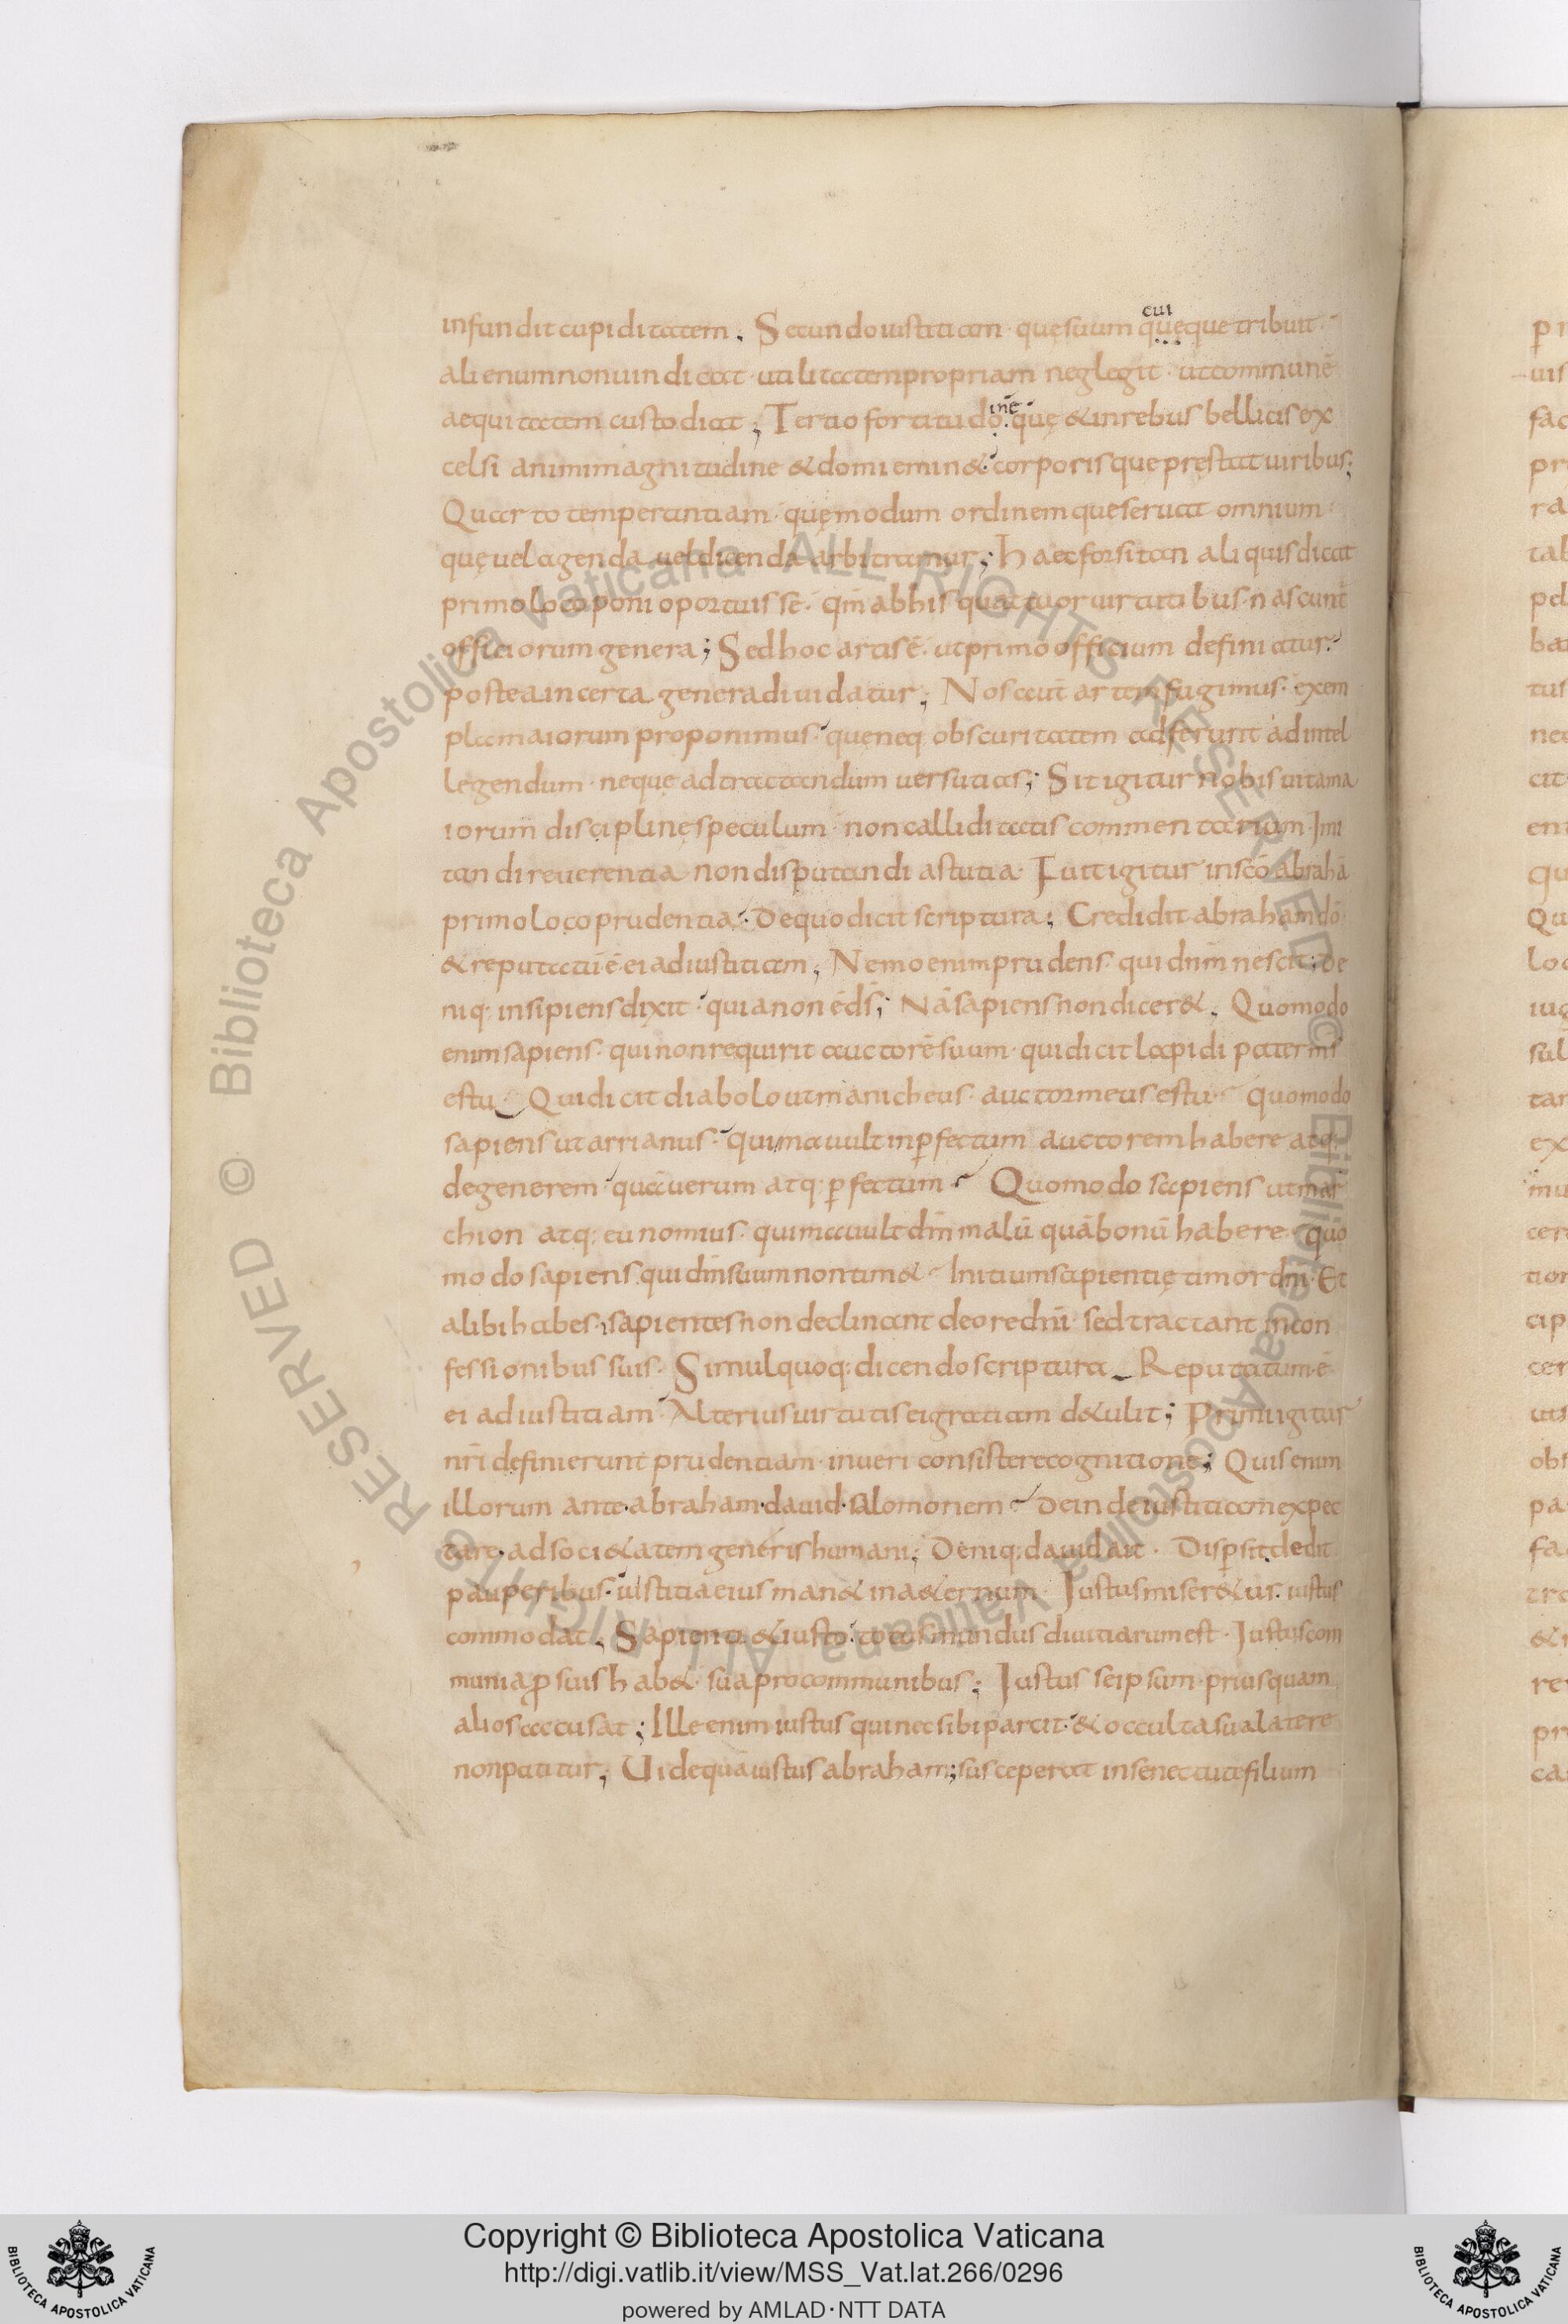 infundit cupiditatem; Secundo iustitiam· quę suum cui quęque tribuit·
alienum non uindicat· utilitatem propriam neglegit· ut commune
aequitatem custodiat; Tertio fortitudo inē· quę & in rebus bellicis ex
celsi animi magnitudine & domi emin& corporisque pręstat uiribus;
Quarto temperantiam· quę modum ordinemque seruat omnium·
quę uel agenda uel dicenda arbitramur; Haec forsitan aliquis dicat
primo loco poni oportuisse· qm̄ ab his quattuor uirtutibus nascunt̄
officiorum genera; Sed hoc artis ē· ut primo officium definiatur·
postea in certa genera diuidatur; Nos aut̄ artem fugimus· exem
pla maiorum proponimus· quę neq· obscuritatem adferunt ad intel
legendum· neque ad tractandum uersutias; Sit igitur nobis uita ma
iorum disciplinę speculum· non calliditatis commentarium· Imi
tandi reuerentia non disputandi astutia· Fuit igitur in sc̄o abrahā
primo loco prudentia· De quo dicit scriptura; Credidit abraham dō·
& reputatū ē· ei ad iustitiam; Nemo enim prudens· qui dn̄m nescit; De
niq: insipiens dixit· quia non ē ds̄; Nā sapiens non dicer&; Quomodo
enim sapiens· qui non requirit auctorē suum· qui dicit lapidi pater m̄s
es tu Qui dicit diabolo ut manicheus· auctor meus es tu· quomodo
sapiens ut arrianus· qui mauult inꝑfectum auctorem habere atq:
degenerem· quā uerum atq· ꝑfectum· Quomodo sapiens ut mar
chion atq: eunomius· qui mauult dm̄ malū quā bonū habere· quo
modo sapiens qui dm̄ suum non tim& Initium sapientię timor dn̄i· Et
alibi habes· sapientes non declinant de ore dn̄i· sed tractant in con
fessionibus suis· Simul quoq: dicendo scriptura Reputatum ē
ei ad iustitiam· Alterius uirtutis ei gratiam d&ulit; Primi igitur
nr̄i definierunt prudentiam· in ueri consistere cognitione; Quis enim
illorum ante· abraham· dauid· salomonem Deinde iustitiam expec
tare· ad soci&atem generis humani; Deniq: dauid ait· Dispersit dedit
pauperibus· iustitia eius man& in a&ernum· Iustus miser&ur· iustus
commodat; Sapienti & iusto· totus mundus diuitiarum est· Iustus com
munia ꝓ suis hab& sua pro communibus; Iustus seipsum· priusquam
alios accusat; Ille enim iustus qui nec sibi parcit· & occulta sua latere
non patitur; Uide quā iustus abraham; susceperat in senectute filium